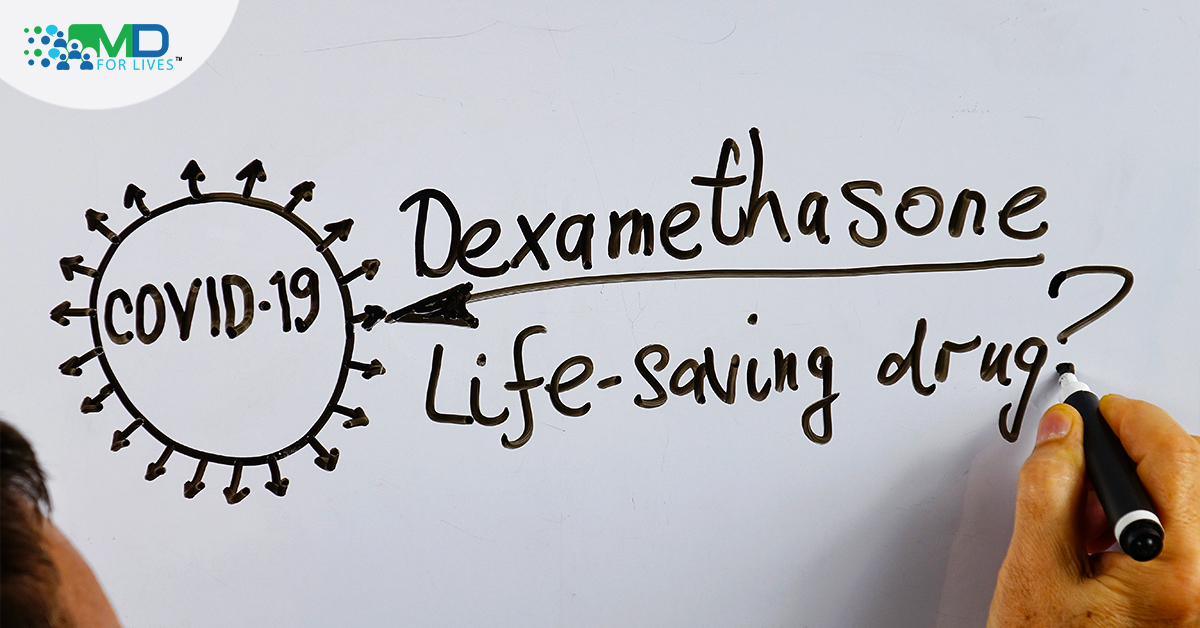 MD
FOR LIVES™
Dexamethasone
COVID-19
Life-saving drug?